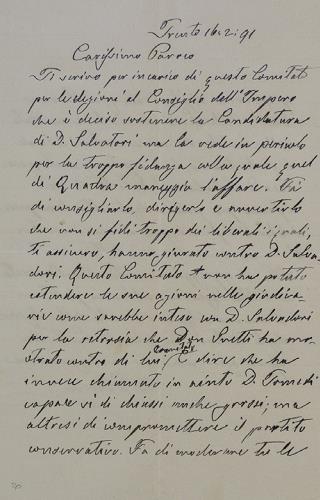 Trento 16.2.91
Carissimo Parroco
Ti scrivo per incarico di questo Comitato
per le elezioni al Consiglio dell'Impero
che è deciso sostenere la Candidatura
di D. Salvatori ma la vede in pericolo
per la troppa fidanza colla quale quel
di Quadra maneggia l'affare. Fa
di consigliarlo, dirigerlo e avvertirlo
che non si fidi troppo dei liberali i quali,
ti assicuro, hanno giurato contro D. Salva-
dori. Questo Comitato non ha potuto
estendere le sue azioni nelle giudica-
rie come sarebbe inteso con D. Salvadori
per la ritrosia che Don ha mo-
strato contro di lui. E dire che ha
Comitato
invece chiamato in aiuto D.
capace sì di chiassi anche grossi, ma
altresì di compromettere il partito
conservativo. Fa di moderare tu le